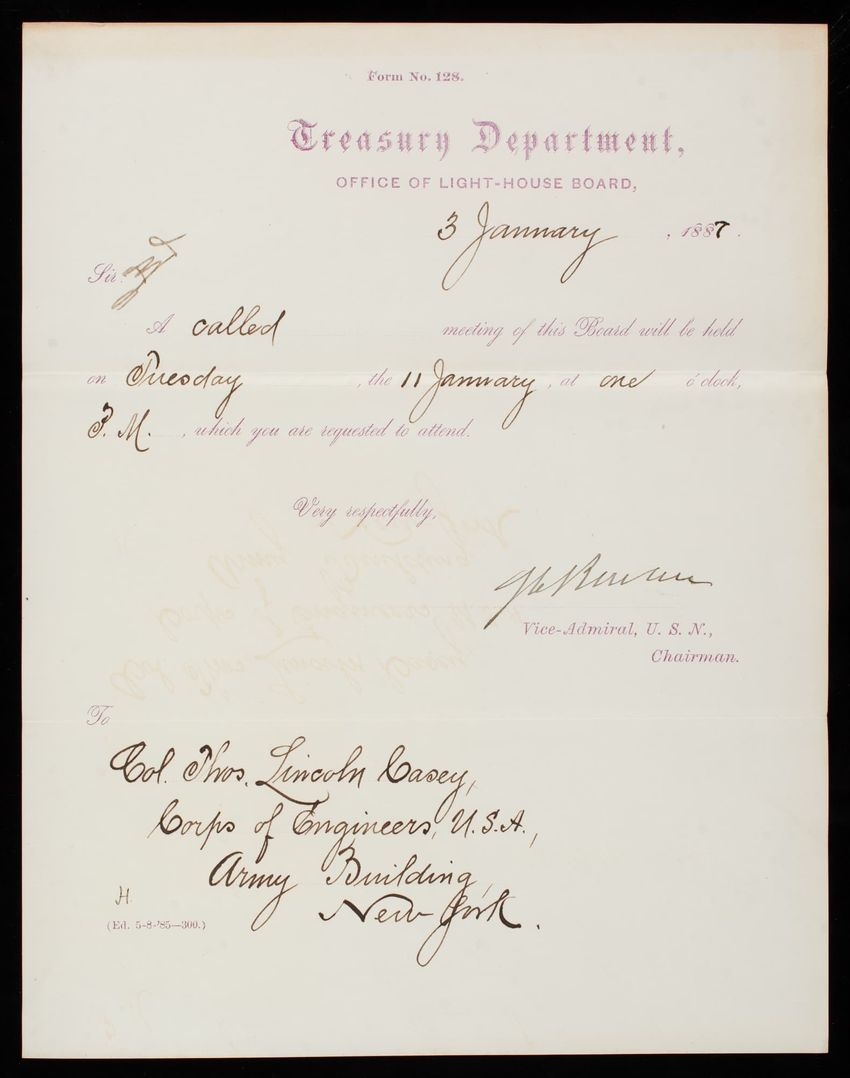 Form No. 128.
Treasury Department,
OFFICE OF LIGHT-HOUSE BOARD,
3 January, 1887.
Sir:
A called meeting of this Board will be held
on Tuesday, the 11 January, at one o'clock,
P. M., which you are requested to attend.
Very respectfully,
Vice-Admiral, U. S. N.,
Chairman.
To
Col. Thos. Lincoln Casey,
Corps of Engineers, U.S.A.,
Army Building,
New York.
H.
(Ed. 5-8-'85—300.)